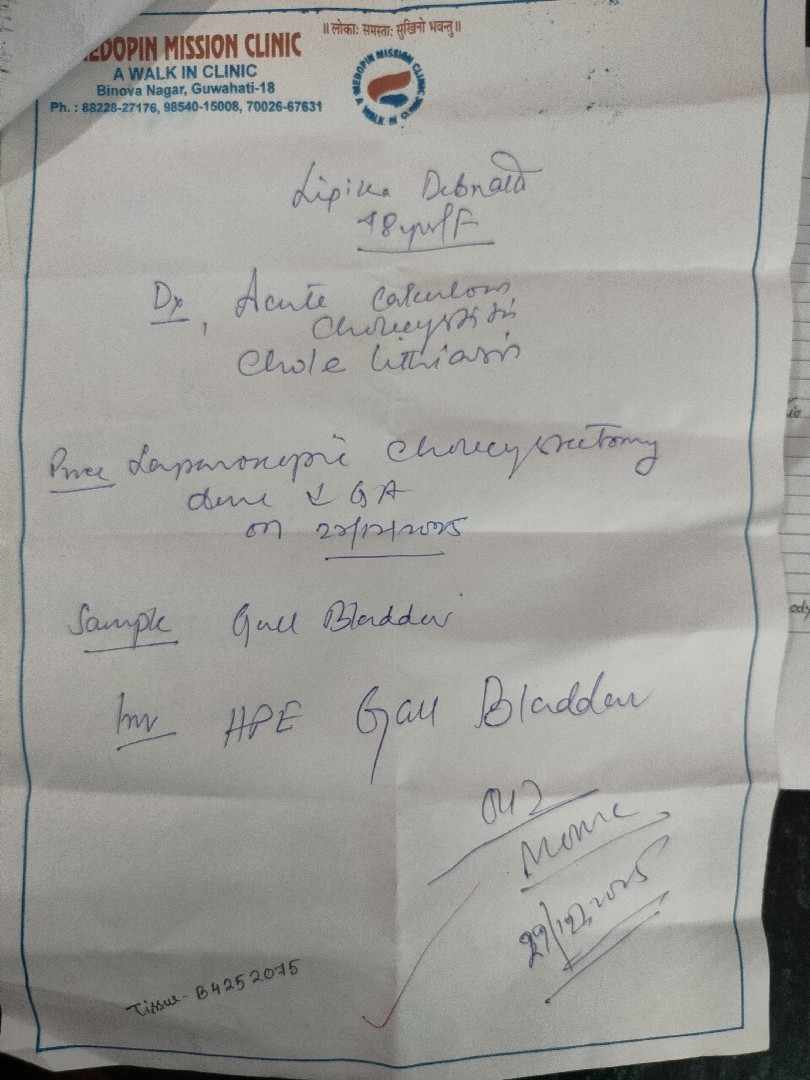 ॥ लोकाः समस्ताः सुखिनो भवन्तु ॥
EDOPIN MISSION CLINIC
A WALK IN CLINIC
Binova Nagar, Guwahati-18
Ph. : 88228-27176, 98540-15008, 70026-67631
MEDOPIN MISSION CLINIC
A WALK IN CLINIC
Lipika Debnath
48yrs/F
Dx, Acute Calculous
Cholecystitis
Cholelithiasis
Proc Laparoscopic Cholecystectomy
done GA
on
Sample Gall Bladder
Inv HPE Gall Bladder
29/12/2025
Tissue- B4252075